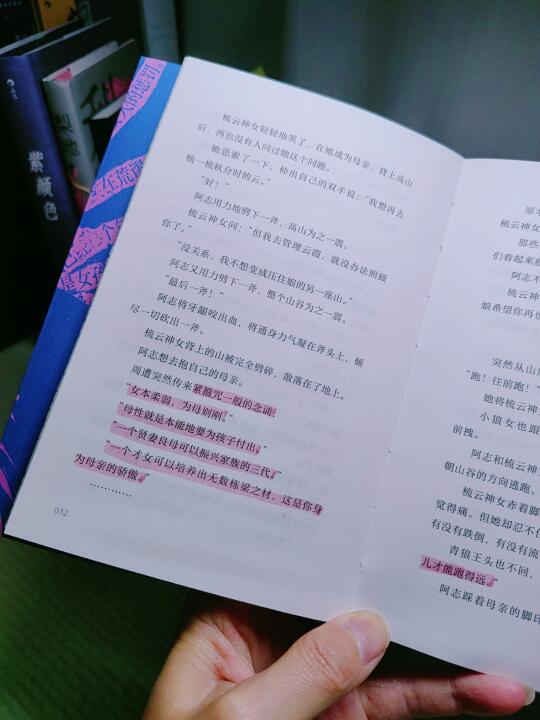 紫颜色
梳云神女轻轻地笑了，在她成为母亲，背上高山
后，再也没有人问过她这个问题。
她思索了一下，伸出自己的双手说：“我想再去
梳一梳秋分时的云。”
“好！”
阿志用力地劈下一斧，高山为之一震。
梳云神女问：“但我去管理云霞，就没办法照顾
你了。”
“没关系，我不想变成压住娘的另一座山。”
阿志又用力劈下一斧，整个山谷为之一震。
“最后一斧！”
阿志将牙龈咬出血，将通身力气凝在斧头上，倾
尽一切砍出一斧。
梳云神女背上的山被完全劈碎，散落在了地上。
阿志想去抱自己的母亲。
周遭突然传来紧箍咒一般的念诵：
“女本柔弱，为母则刚。”
“母性就是本能地要为孩子付出。”
“一个贤妻良母可以振兴家族的三代。”
“一个才女可以培养出无数栋梁之材，这是你身
为母亲的骄傲。”
…………
032
原本
梳云神女
那些
们看起来
阿志不
梳云神
娘希望你再也
突然从山
“跑！往前跑！”
她将梳云神
小狼女也跟
前拽。
阿志和梳云神
朝山谷的方向逃跑。
梳云神女赤着脚
觉得痛。但她却忍不住
有没有跌倒，有没有流
青狼王头也不回，
儿才能跑得远。”
阿志踩着母亲的脚印